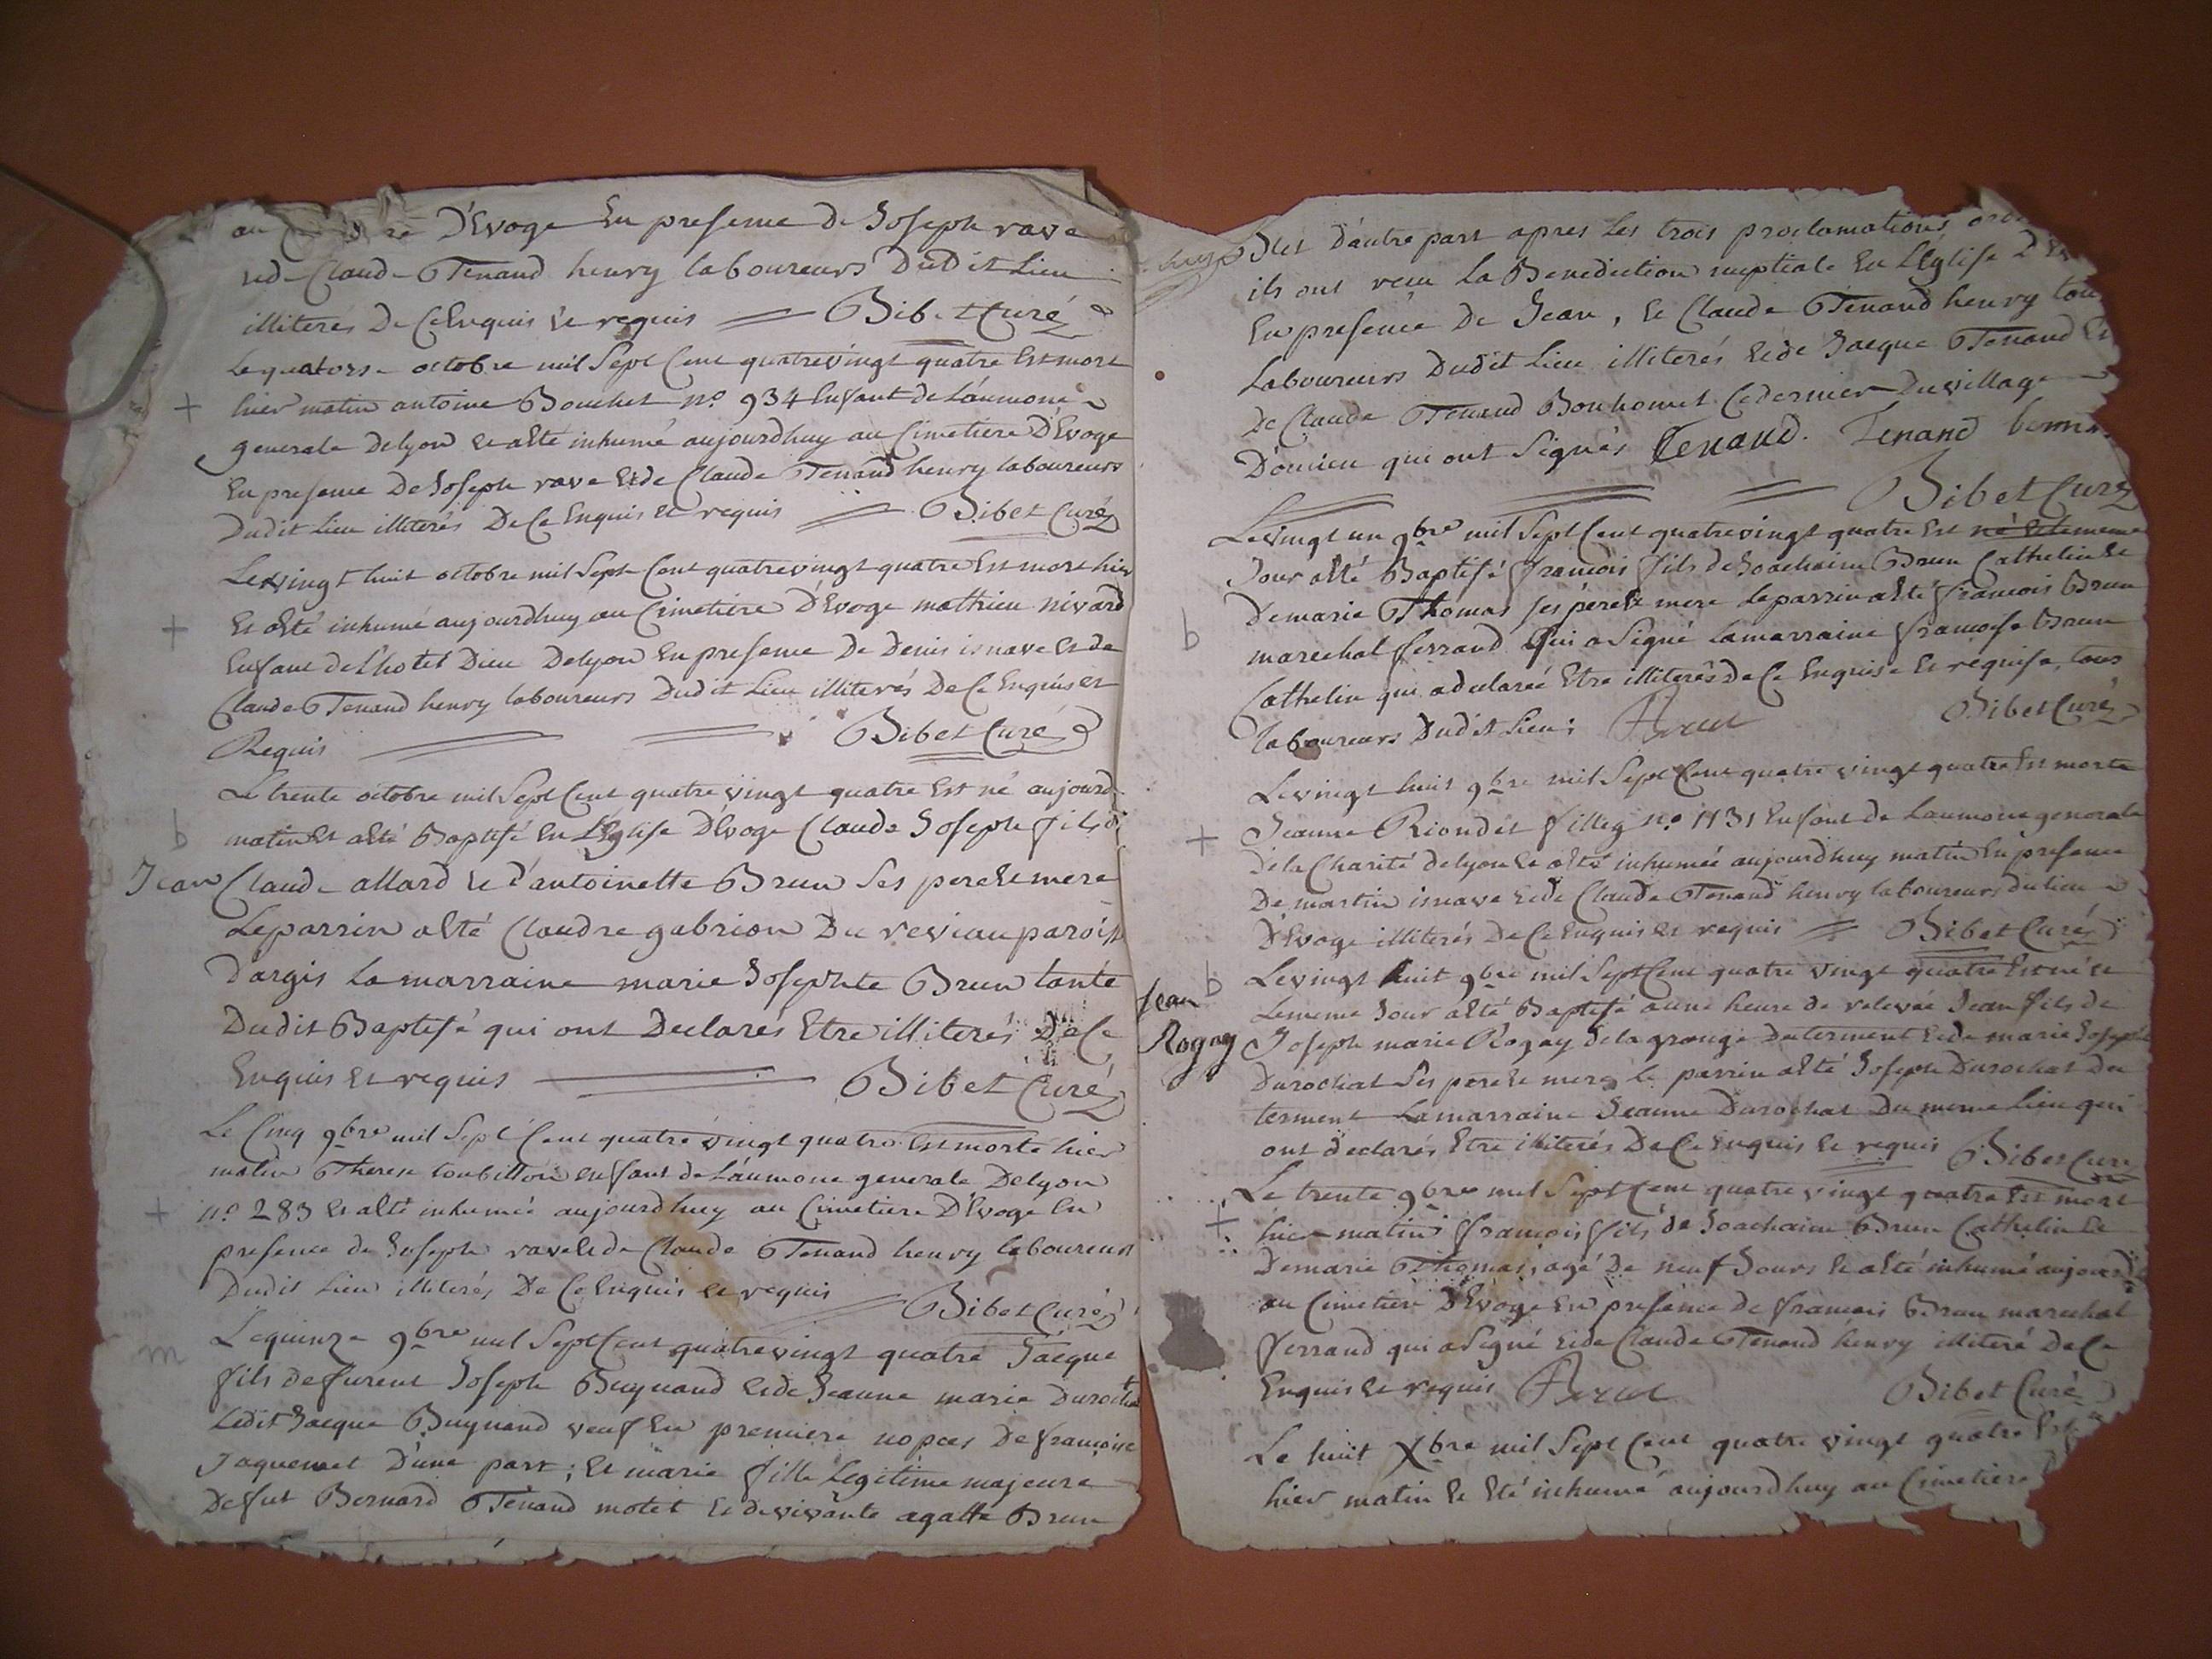 au D'Evoge En presence de Joseph rave
et de Claude Tenand henry laboureurs Dudit Lieu
illiterés De Ce Enquis et requis Bibet Curé
Le quatorse octobre mil Sept Cent quatrevingt quatre Est mort
+ hier matin antoine Bouchet n.o 934 Enfant de L'aumone
generale Delyon et a Eté inhumé aujourdhuy au Cimetiere D'Evoge
En presence De Joseph rave et de Claude Tenand henry laboureurs
Dudit Lieu illiterés De Ce Enquis et requis Bibet Curé
Le vingt huit octobre mil Sept Cent quatrevingt quatre Est mort hier
+ Et a Eté inhumé aujourdhuy au Cimetière D'Evoge mathieu nivard
Enfant de L'hotel Dieu Delyon En presence De Denis isnave Et de
Claude Tenand henry laboureurs Dudit Lieu illiterés De Ce Enquis et
Requis Bibet Curé
Le trente octobre mil Sept Cent quatre vingt quatre Est né aujourd
b matin Et a Eté Baptisé En L'Eglise D'Evoge Claude Joseph fils
Jean Claude allard et d'antoinette Brun Ses pere et mere
Le parrin a Eté Claudre gabrion Du reviau paroisse
D'argis La marraine marie Josephte Brun tante
Dudit Baptisé qui ont Declarés Etre illiterés De Ce
Enquis et requis Bibet Curé
Le Cinq 9bre mil Sept Cent quatre vingt quatre Est morte hier
matin Therese enfant de L'aumone generale Delyon
+ n.o 283 et a Eté inhumée aujourdhuy au Cimetiere D'Evoge En
presence de Joseph rave et de Claude Tenand henry laboureurs
Dudit Lieu illiterés De Ce Enquis et requis Bibet Curé
m Le quinze 9bre mil Sept Cent quatrevingt quatre Jacque
fils de furent Joseph Buynand et de Jeanne marie Durochat
Ledit Jacque Buynand veuf En premiere nopces De françoise
Jaquemet D'une part; Et marie fille Legitime majeure
De fut Bernard Tenand motet et de vivante agatte Brun
D'autre part apres Les trois proclamations
ils ont recu La Benediction nuptiale En L'Eglise
En presence De Jean, et Claude Tenand henry tou
Laboureurs Dudit Lieu illiterés et de Jacque Tenand
De Claude Tenand Bonhomet Ce dernier Du village
D'oncieu qui ont Signés Tenand. Tenand
Bibet Curé
Le vingt un 9bre mil Sept Cent quatrevingt quatre Est né et le meme
Jour a Eté Baptisé françois fils de Joachaim Brun Cathelin et
b De marie Thomas ses pere et mere Le parrin a Eté françois Brun
marechal ferrand Qui a Signé La marraine françoise Brun
Cathelin qui a declareé Etre illiterés de Ce Enquise Et requise, tous
laboureurs Dudit Lieu; Brun Bibet Curé
Le vingt huit 9bre mil Sept Cent quatre vingt quatre Est morte
+ Jeanne Riondet n.o 1131 Enfant de Laumone generale
De la Charité delyon et a Eté inhumée aujourdhuy matin En presence
De martin isnave et de Claude Tenand henry laboureurs du lieu
D'Evoge illiterés De Ce Enquis et requis Bibet Curé
b Le vingt huit 9bre mil Sept Cent quatre vingt quatre Est né et
Jean Le meme Jour a Eté Baptisé a une heure de relevée Jean fils de
Rogay Joseph marie Rogay De la grange Du terment et de marie Josephte
Durochat Ses pere et mere, le parrin a Eté Joseph Durochat Du
terment La marraine Jeanne Durochat Du meme Lieu qui
ont declarés Etre illiterés De Ce Enquis et requis Bibet Curé
Le trente 9bre mil Sept Cent quatre vingt quatre Est mort
+ hier matin françois fils de Joachaim Brun Cathelin et
De marie Thomas, agé De neuf Jours et a Eté inhumé aujourd
au Cimetiere D'Evoge En presence de françois Brun marechal
ferrand qui a Signé et de Claude Tenand henry illiteré De Ce
Enquis et requis Brun Bibet Curé
Le huit Xbre mil Sept Cent quatre vingt quatre Est
hier matin et Eté inhumé aujourdhuy au Cimetiere